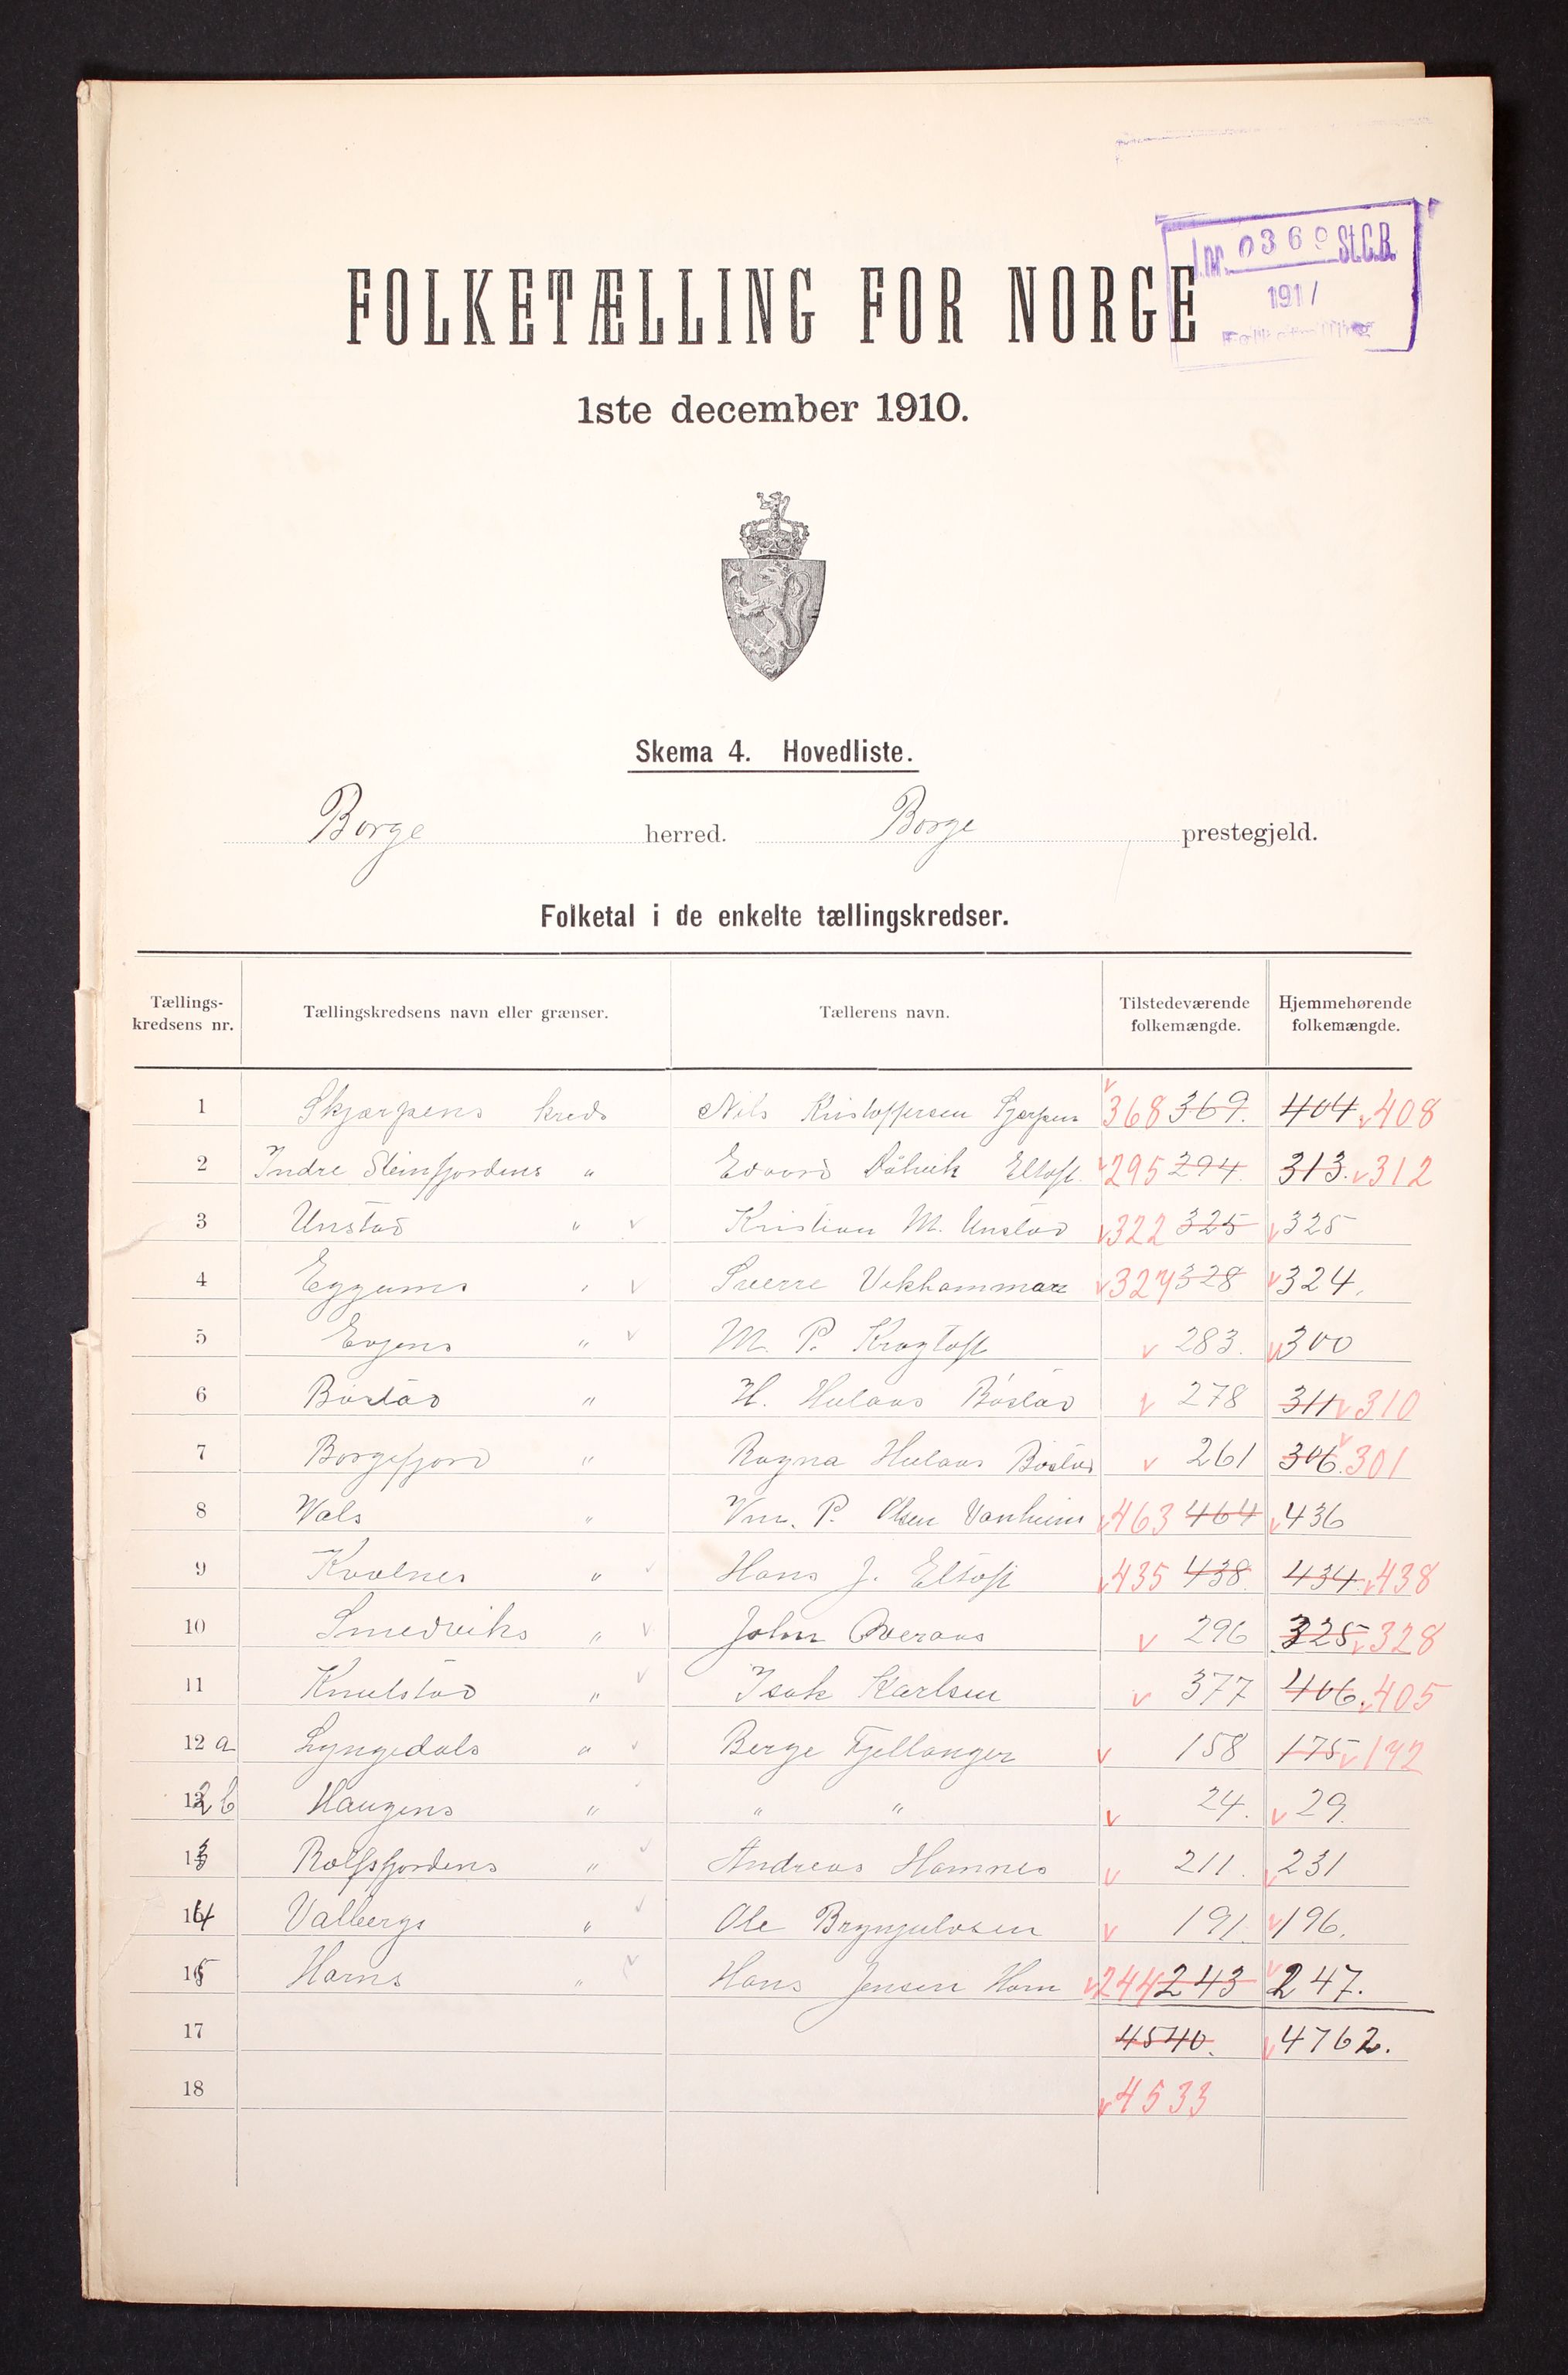 J.nr. 0369 St.C.B.
191/
FOLKETÆLLING FOR NORGE
1ste december 1910.
Skema 4. Hovedliste.
Borge herred. Borge prestegjeld.
Folketal i de enkelte tællingskredser.
Tællings-kredsens nr. Tællingskredsens navn eller grænser. Tællerens navn. Tilstedeværende folkemængde. Hjemmehørende folkemængde.
1 Skjærpens kreds Nils Kristoffersen 368 369. 404 408
2 Indre Steinfjordens " Edvard Eltoft. 295 294. 313. 312
3 Unstad " v Kristian M. Unstad 322 325 325
4 Eggums " v Sverre Vikhammar 327 328 324.
5 Evjens " v M. P. Kragtoft 283. 300
6 Böstad " H. Hulaas Böstad 278 311 310
7 Borgefjord " Ragna Hulaas Böstad 261 306. 301
8 Vals " P. Olsen Vanheim 463 464 436
9 Kvalnes " v Hans J. Eltoft 435 438. 434. 438
10 Smedviks " v John Overaas 296 325 328
11 Knutstad " v Isak Karlsen 377 406. 405
12 a Lyngedals " v Berge Fjellanger 158 175 172
12 b Haugens " " " 24. 29.
13 Rolfsfjordens " v Andreas Hamnes 211. 231
14 Valbergs " v Ole Brynjulvsen 191. 196.
15 Horns " v Hans Jensen Horn 244 243 247.
17 4540. 4762.
18 4533